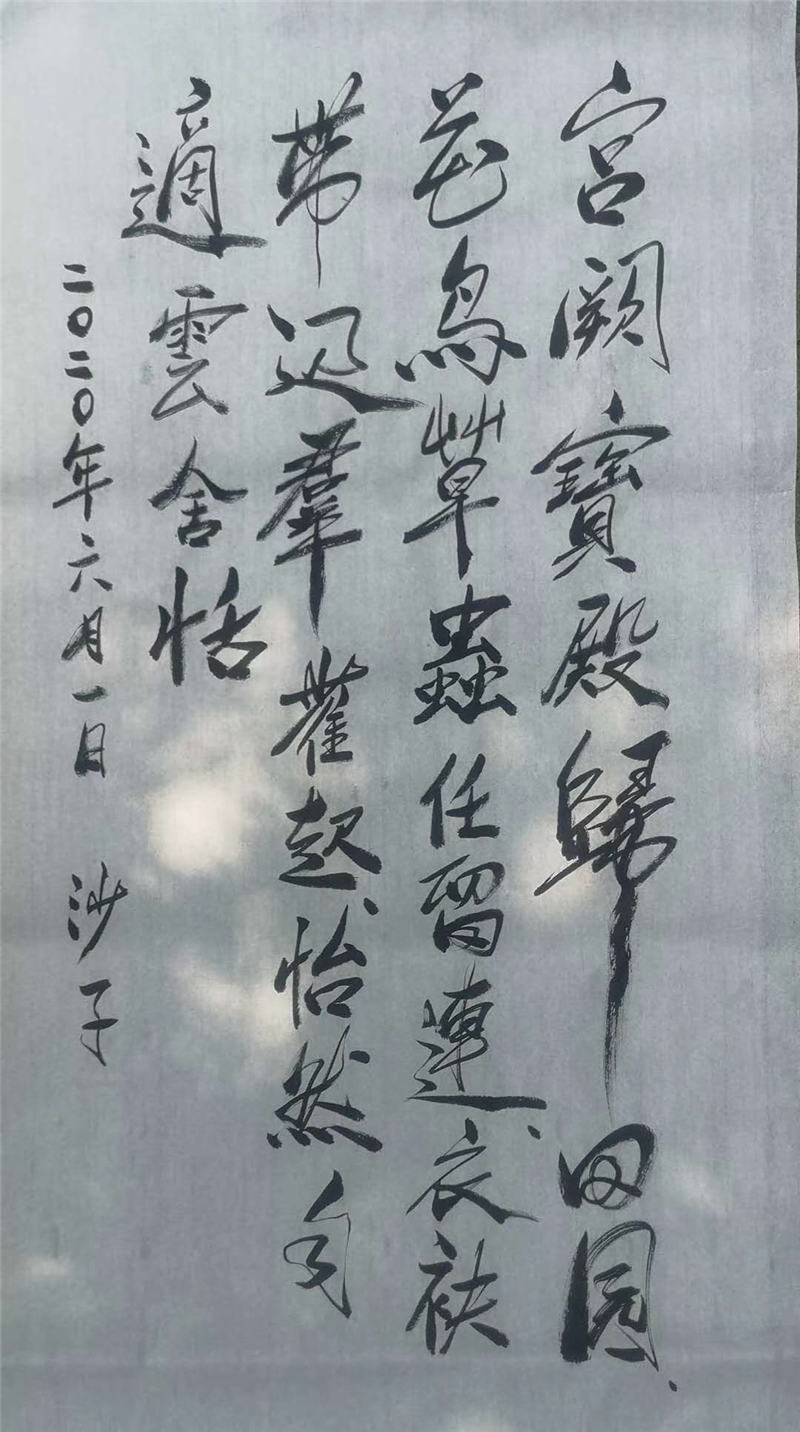 宮闕寶殿歸田園、
花鳥草蟲任留連、衣袂
帶羣起、怡然自
適雲舍恬
二〇二〇年六月一日 沙子